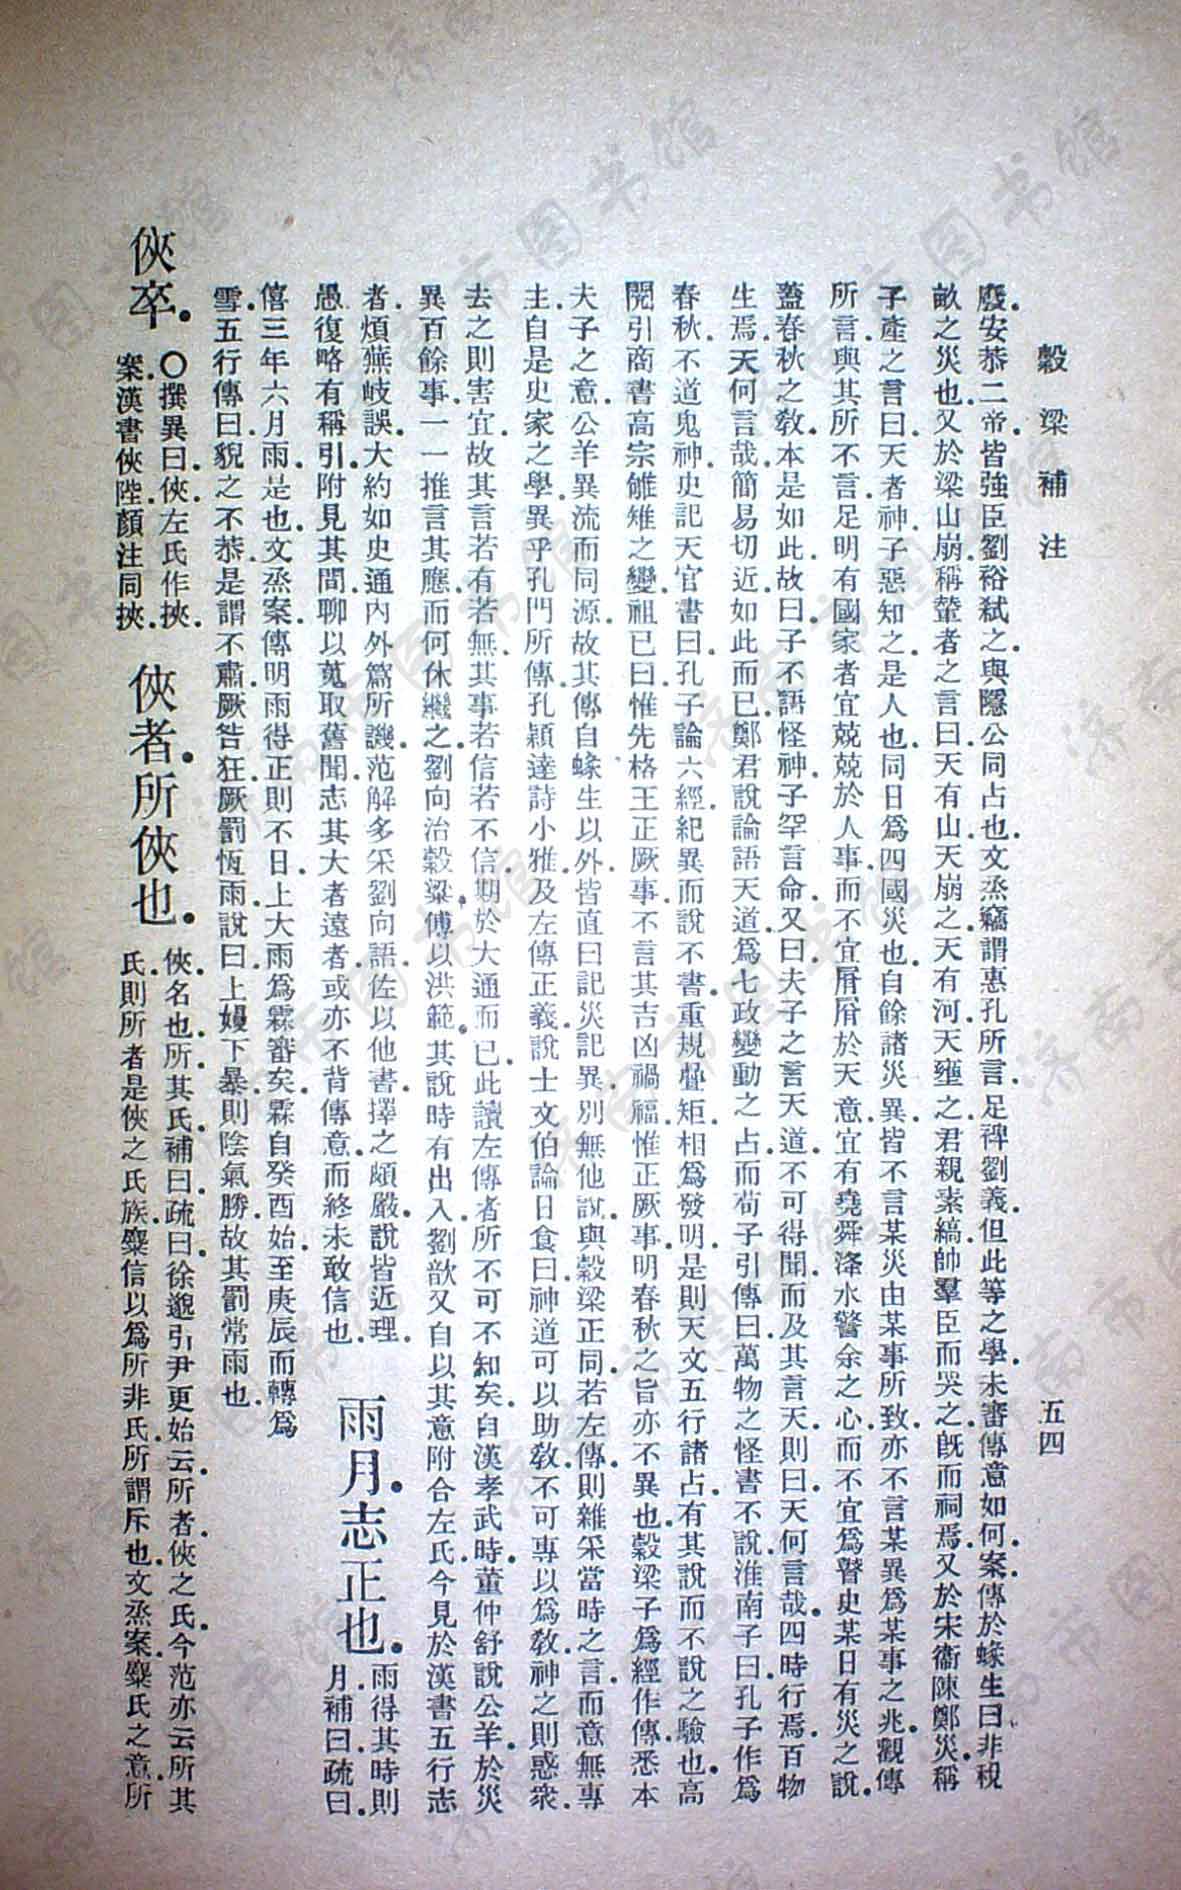 穀梁補注　五四
廢安恭二帝皆強臣劉裕弒之與隱公同占也文烝竊謂惠孔所言足裨劉義但此等之學未審傳意如何案傳於蝝生曰非稅
畝之災也又於梁山崩稱輦者之言曰天有山天崩之天有河天壅之君親素縞帥羣臣而哭之旣而祠焉又於宋衞陳鄭災稱
子產之言曰天者神子惡知之是人也同日爲四國災也自餘諸災異皆不言某災由某事所致亦不言某異爲某事之兆觀傳
所言與其所不言足明有國家者宜兢兢於人事而不宜屑屑於天意宜有堯舜洚水警余之心而不宜爲瞽史某日有災之說
蓋春秋之敎本是如此故曰子不語怪神子罕言命又曰夫子之言天道不可得聞而及其言天則曰天何言哉四時行焉百物
生焉天何言哉簡易切近如此而已鄭君說論語天道爲七政變動之占而荀子引傳曰萬物之怪書不說淮南子曰孔子作爲
春秋不道鬼神史記天官書曰孔子論六經紀異而說不書重規疊矩相爲發明是則天文五行諸占有其說而不說之驗也高
閌引商書高宗雊雉之變祖已曰惟先格王正厥事不言其吉凶禍福惟正厥事明春秋之旨亦不異也穀梁子爲經作傳悉本
夫子之意公羊異流而同源故其傳自蝝生以外皆直曰記災記異別無他說與穀梁正同若左傳則雜采當時之言而意無專
主自是史家之學異乎孔門所傳孔穎達詩小雅及左傳正義說士文伯論日食曰神道可以助敎不可專以爲敎神之則惑衆
去之則害宜故其言若有若無其事若信若不信期於大通而已此讀左傳者所不可不知矣自漢孝武時董仲舒說公羊於災
異百餘事一一推言其應而何休繼之劉向治穀梁傅以洪範其說時有出入劉歆又自以其意附合左氏今見於漢書五行志
者煩蕪岐誤大約如史通內外篇所譏范解多采劉向語佐以他書擇之頗嚴說皆近理
愚復略有稱引附見其間聊以蒐取舊聞志其大者遠者或亦不背傳意而終未敢信也　雨月志正也　雨得其時則
月補曰疏曰
僖三年六月雨是也文烝案傳明雨得正則不日上大雨爲霖審矣霖自癸酉始至庚辰而轉爲
雪五行傳曰貌之不恭是謂不肅厥咎狂厥罰恆雨說曰上嫚下暴則陰氣勝故其罰常雨也
俠卒　○撰異曰俠左氏作挾
案漢書俠陛顏注同挾　俠者所俠也　俠名也所其氏補曰疏曰徐邈引尹更始云所者俠之氏今范亦云所其
氏則所者是俠之氏族麋信以爲所非氏所謂斥也文烝案麋氏之意所